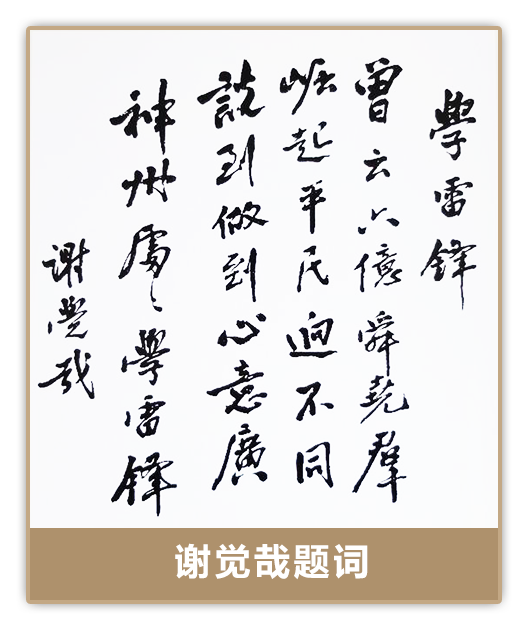 學雷鋒
曾云六億舜堯群
崛起平民迥不同
說到做到心意廣
神州處々學雷鋒
謝覺哉
谢觉哉题词